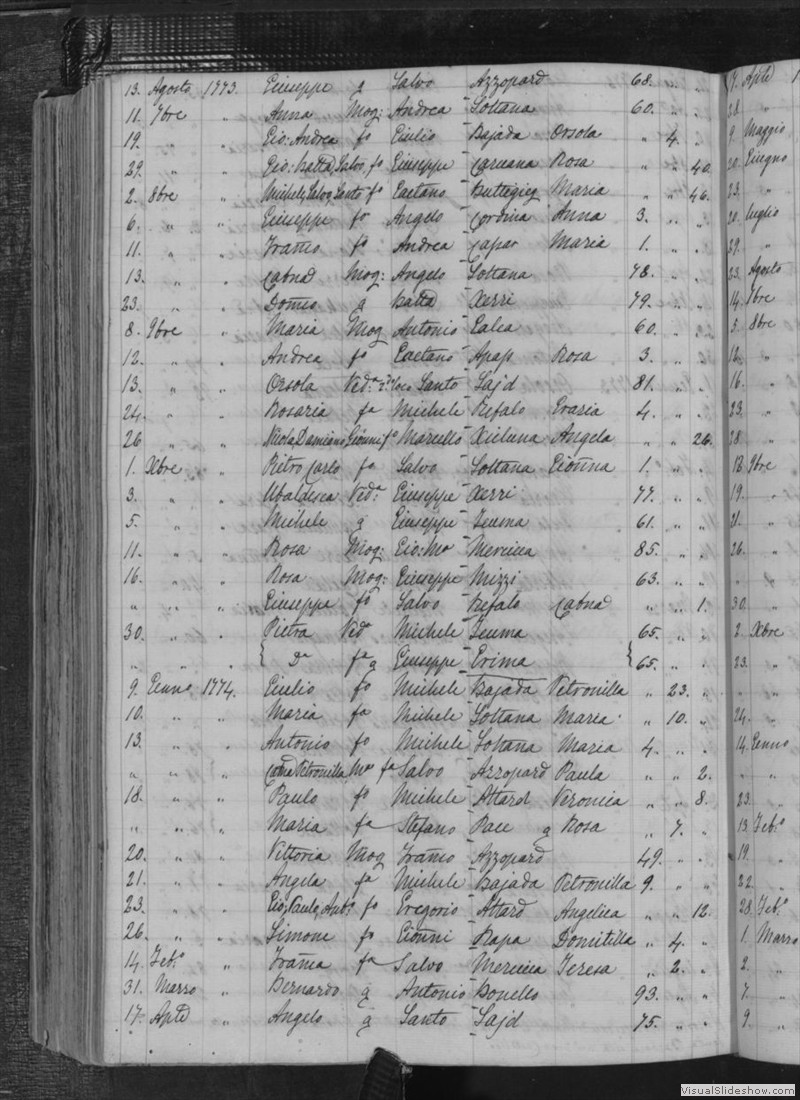 13. Agosto 1773. Giuseppe q Salvo Azzopard 68. " "
11. 7bre " Anna Mog: Andrea Soltana 60. " "
19. " " Gio: Andrea fo Giulio Bajada Orsola " 4. "
29. " " Gio: Batta, Salvo, fo Giuseppe Caruana Rosa " " 40.
2. 8bre " Michele, Salvo, Santo fo Gaetano Buttegieg Maria " " 46.
6. " " Giuseppe fo Angelo Cordina Anna 3. " "
11. " " Franco fo Andrea Capar Maria 1. " "
13. " " Catna Mog: Angelo Soltana 78. " "
23. " " Domco q Batta Xerri 79. " "
8. 9bre " Maria Mog Antonio Galea 60. " "
12. " " Andrea fo Gaetano Apap Rosa 3. " "
13. " " Orsola Ved:a Santo Sajd 81. " "
24. " " Rosaria fa Michele Refalo Grazia 4. " "
26 " " Nicola Damiano Gionni fo Marcello Xicluna Angela " " 26.
1. Xbre " Pietro Carlo fo Salvo Soltana Gionna 1. " "
3. " " Ubaldesca Ved:a Giuseppe Xerri 77. " "
5. " " Michele q Giuseppe Zeuma 61. " "
11. " " Rosa Mog: Gio: Ma Mercieca 85. " "
16. " " Rosa Mog: Giuseppe Mizzi 63. " "
" " " Giuseppe fo Salvo Refalo Catna " " 1.
30. " " Pietra Veda Michele Zeuma 65. " "
" " " { Da fa q Giuseppe Grima { 65. " "
9. Genno 1774. Giulio fo Michele Bajada Petronilla " 23. "
10. " " Maria fa Michele Soltana Maria " 10. "
13. " " Antonio fo Michele Soltana Maria 4. " "
" " " Catna Petronilla, Ma fa Salvo Azzopard Paula " " 2.
18. " " Paulo fo Michele Attard Veronica " " 8.
" " " Maria fa Stefano Pace q Rosa " 7. "
20. " " Vittoria Mog Franco Azzopard 49. " "
21. " " Angela fa Michele Bajada Petronilla 9. " "
23. " " Gio, Paulo, Anto fo Gregorio Attard Angelica " " 12.
26. " " Simone fo Gionni Rapa Domitilla " 4. "
14. Feb.o " Franca fa Salvo Mercieca Teresa " 2. "
31. Marzo " Bernardo q Antonio Bonello 93. " "
17. Aple " Angelo q Santo Sajd 75. " "
17. Aple 1
28. "
9. Maggio
20. Giugno
23. "
20. Luglio
29. "
23. Agosto
14. 7bre
5. 8bre
16. "
23. "
28. "
18 9bre
19. "
21. "
26. "
" "
30. "
2. Xbre
23. "
" "
24. "
14. Genno
" "
23. "
13. Feb.o
19. "
22. "
28. Feb.o
1. Marzo
2. "
7. "
9. "
VisualSlideshow.com